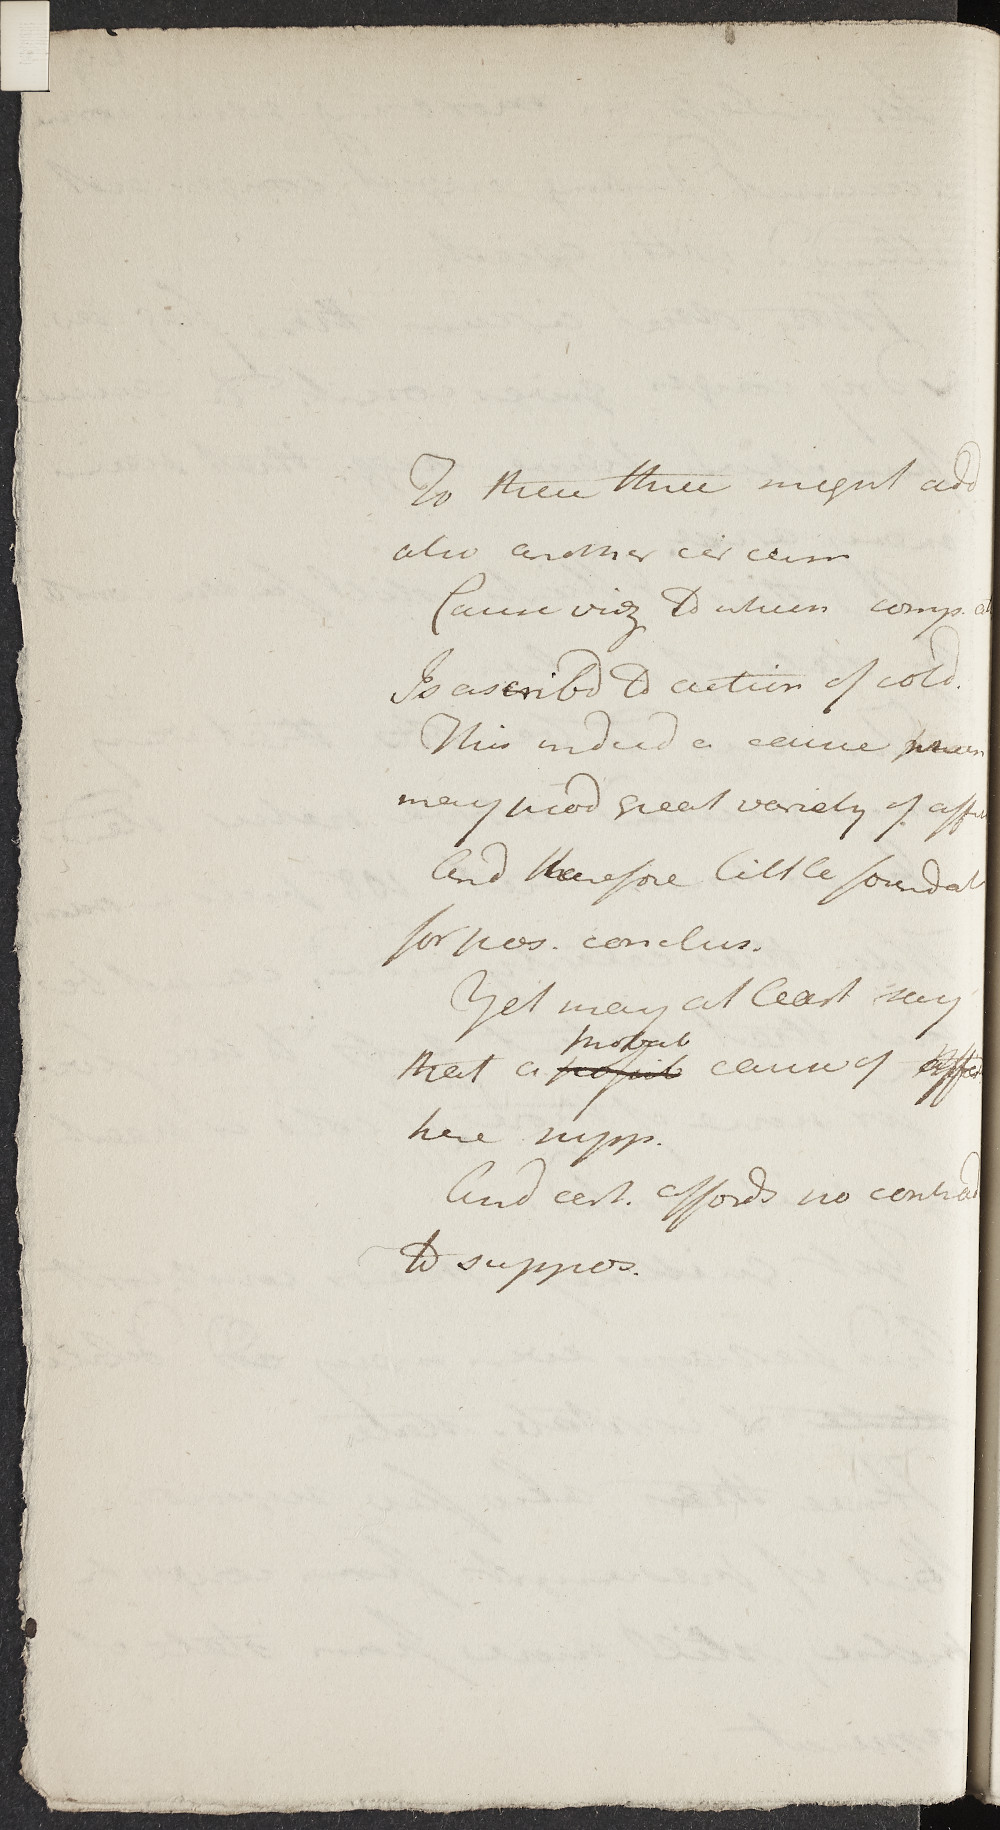 To these three might add
also another circum
Cause viz to which comp.
Is ascribd to action of cold.
This indeed a cause
may prod great variety of aff
And therefore little foundat
for pos. conclus.
Yet may at least say
probab
that a possib cause of
here supp.
And cert. affords no contrad
to suppos.